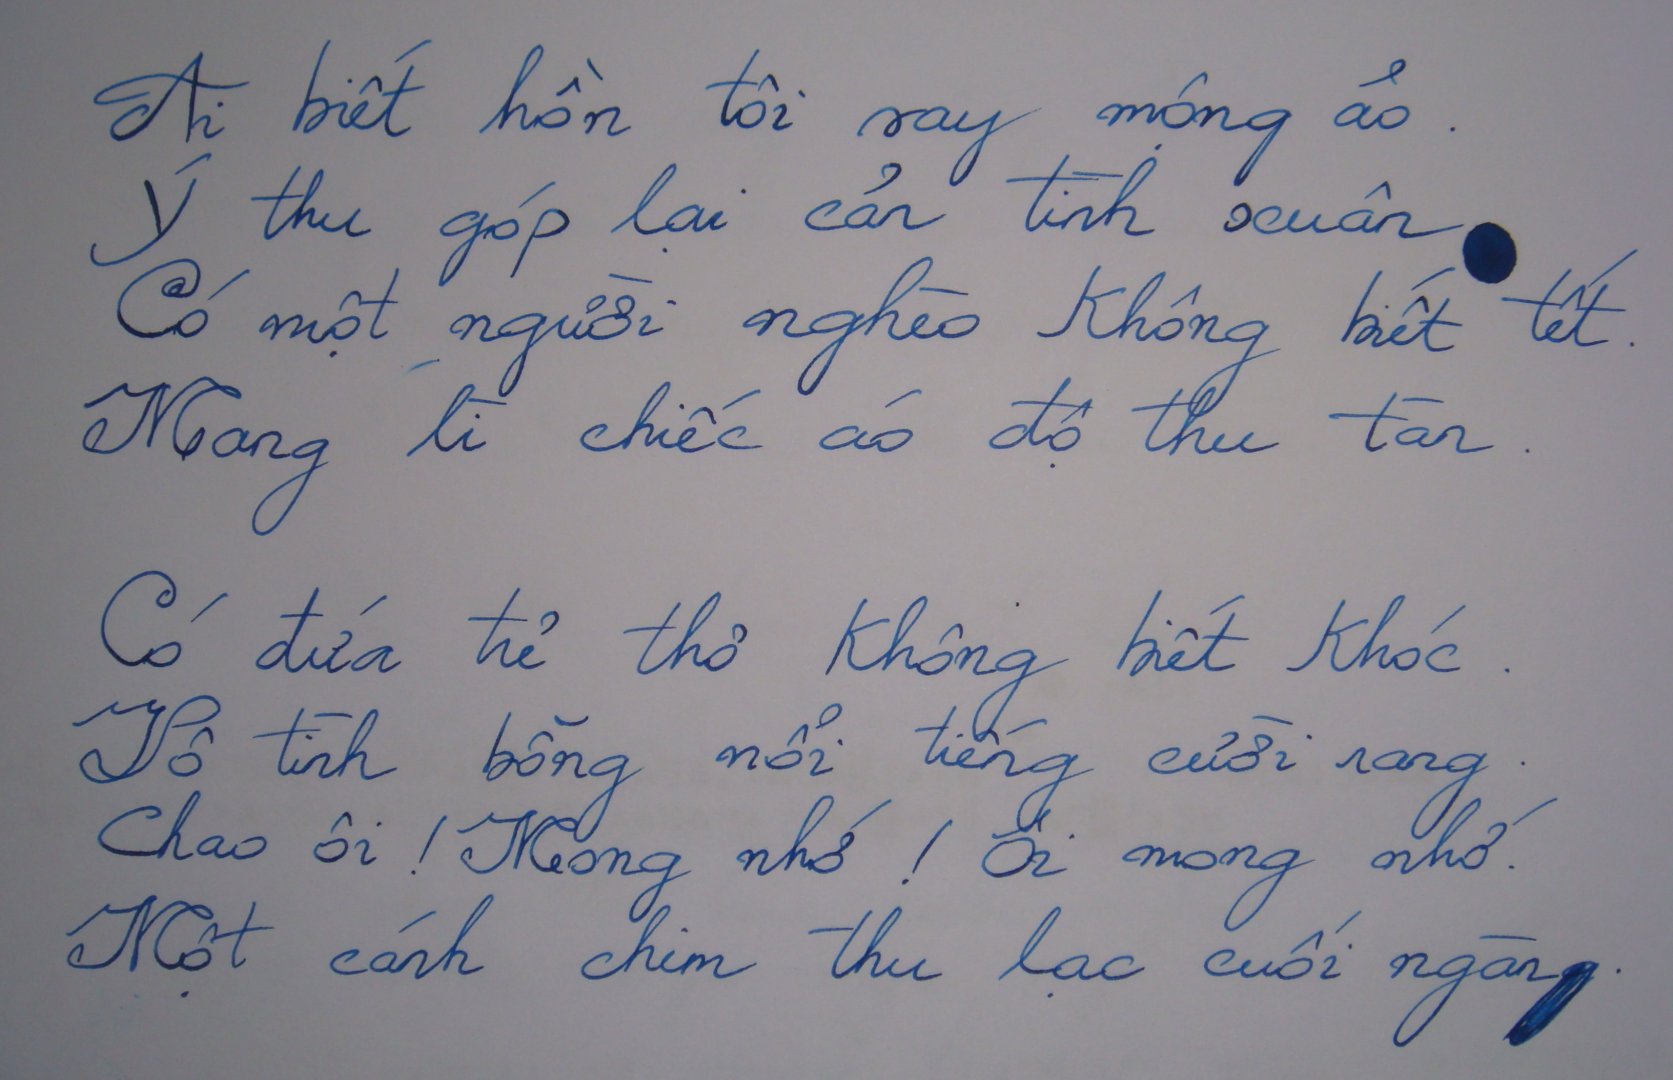 Ai biết hồn tôi say mộng ảo.
Ý thu góp lại cản tình xuân
Có một người nghèo không biết tết.
Mang lì chiếc áo độ thu tàn.
Có đứa trẻ thơ không biết khóc.
Vô tình bỗng nổi tiếng cười ran.
Chao ôi! Mong nhớ! Ôi mong nhớ.
Một cánh chim thu lạc cuối ngàn.